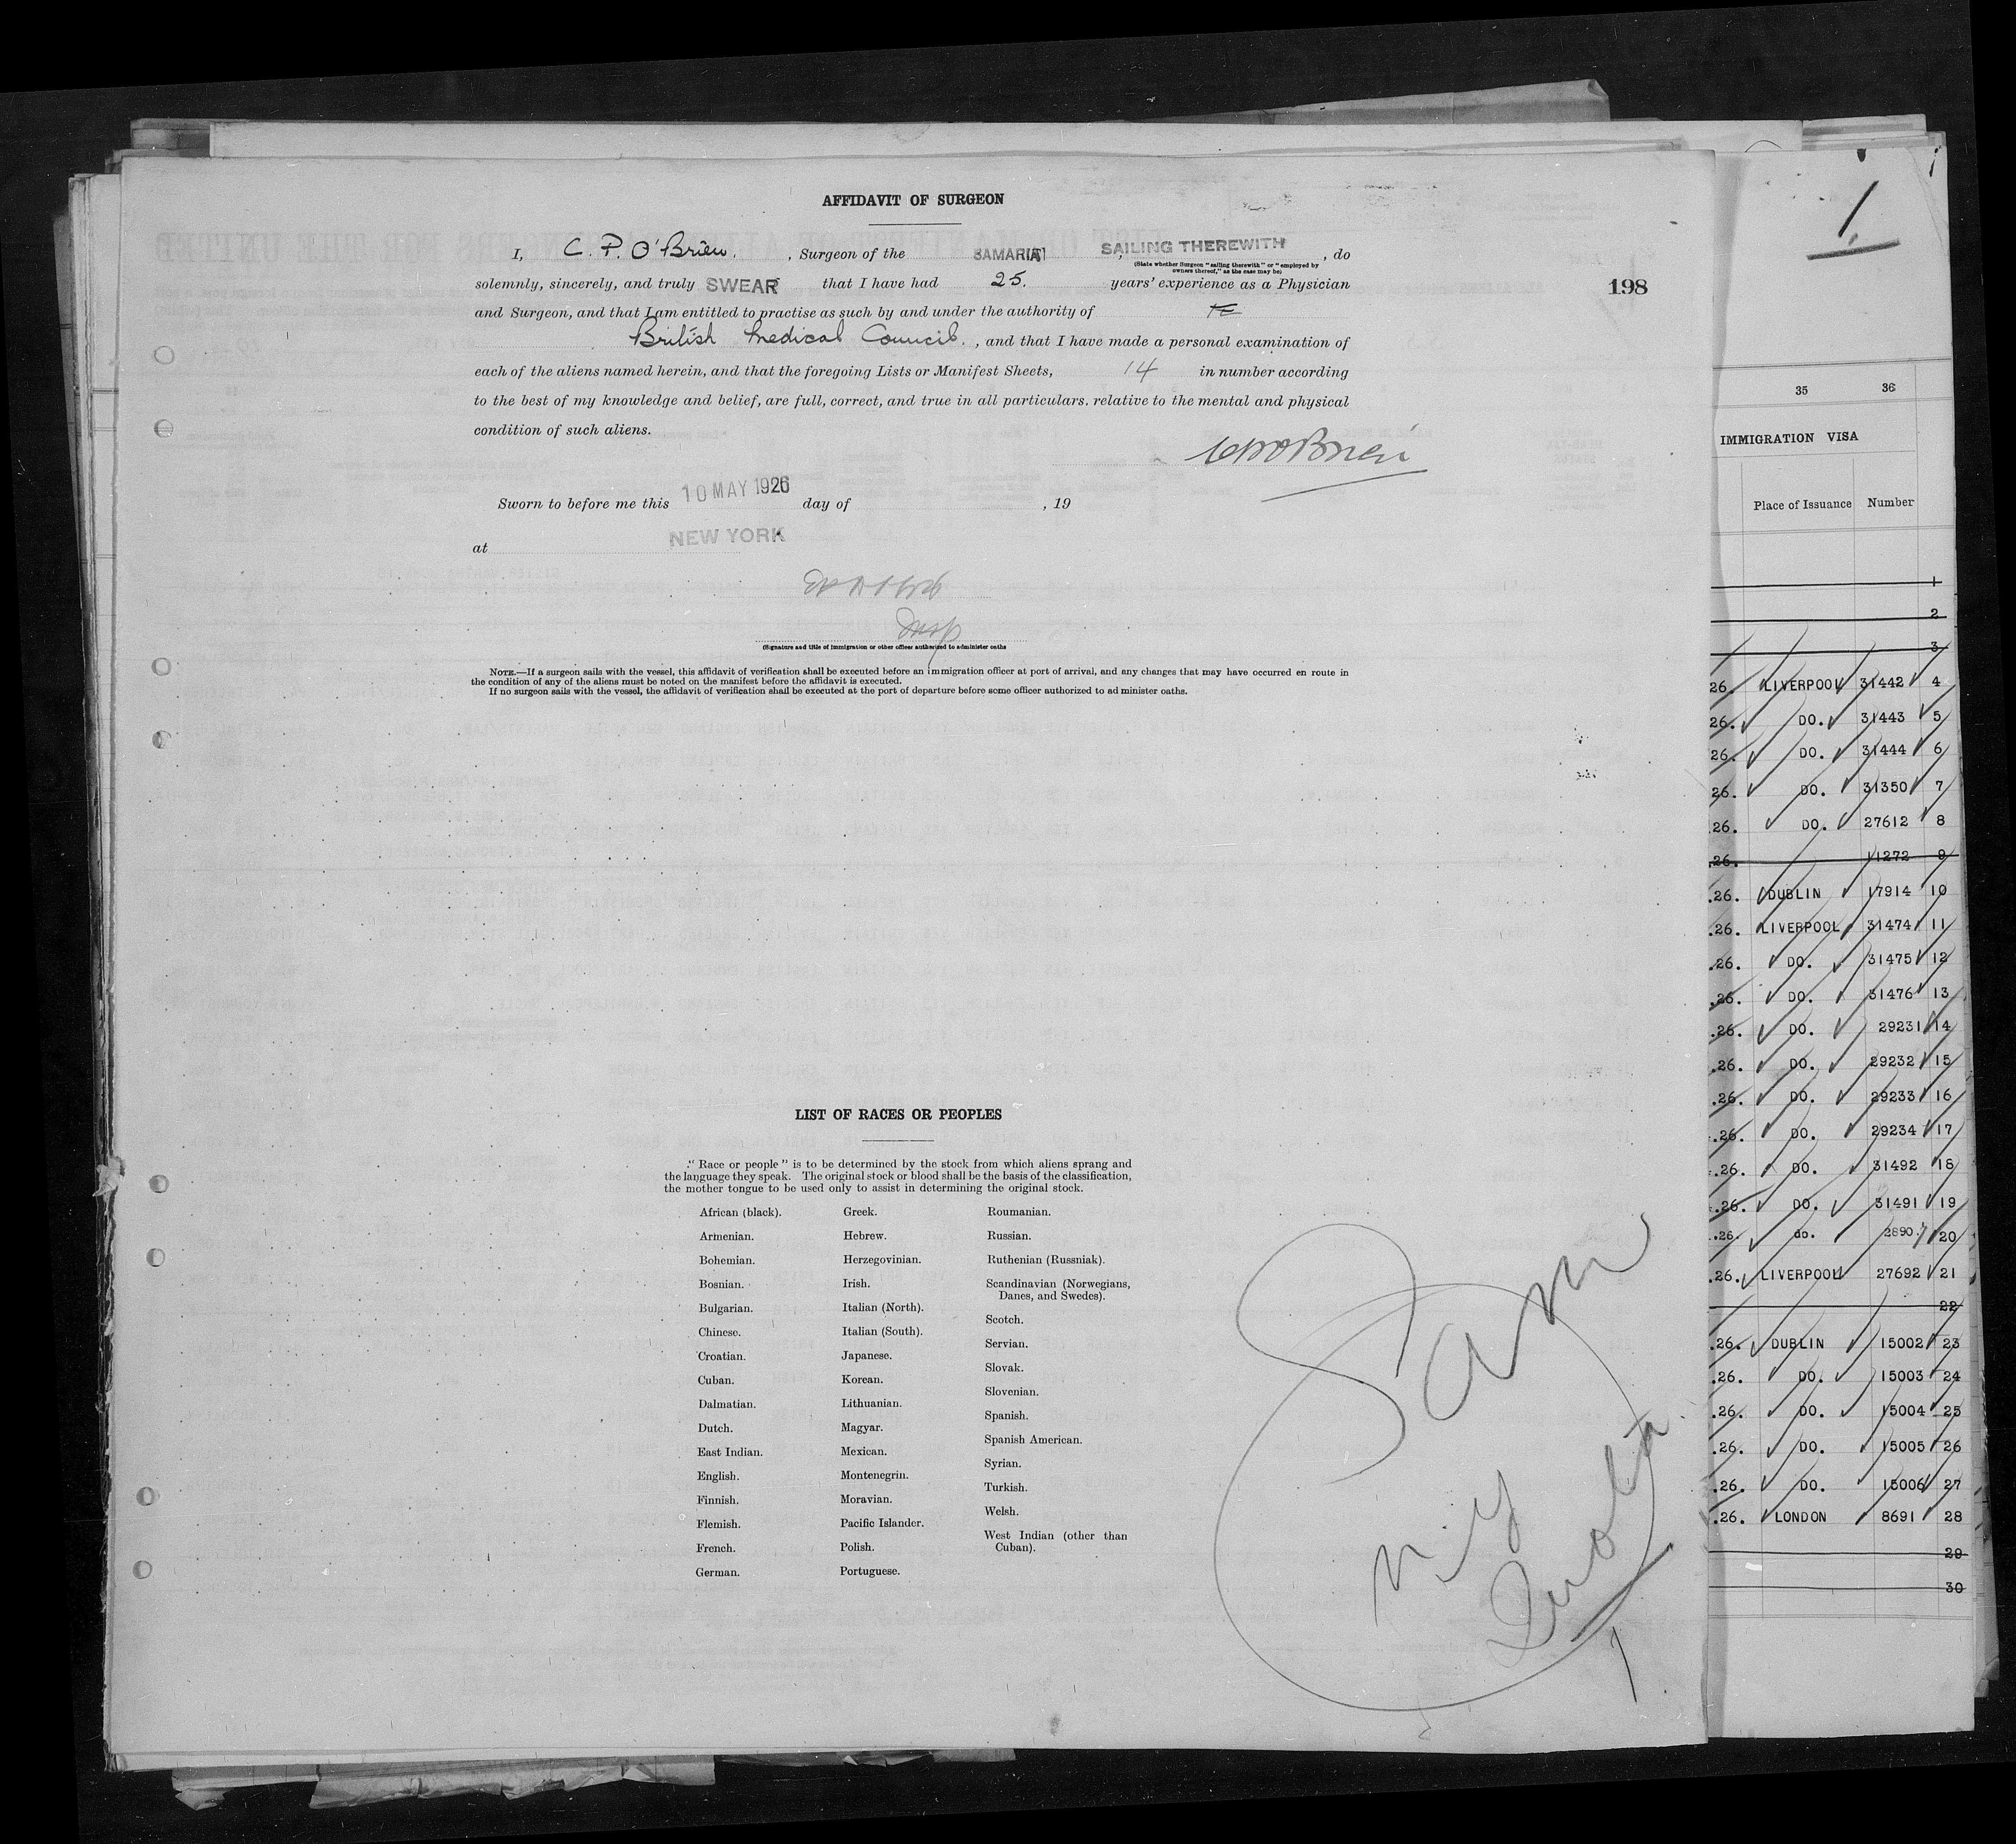 AFFIDAVIT OF SURGEON
I, C. P. O'Brien. , Surgeon of the SAMARIA , SAILING THEREWITH , do
(State whether Surgeon "sailing therewith" or "employed by
owners thereof," as the case may be)
solemnly, sincerely, and truly SWEAR that I have had 25. years' experience as a Physician
198
and Surgeon, and that I am entitled to practise as such by and under the authority of
British Medical Council. , and that I have made a personal examination of
each of the aliens named herein, and that the foregoing Lists or Manifest Sheets, 14 in number according
to the best of my knowledge and belief, are full, correct, and true in all particulars. relative to the mental and physical
condition of such aliens.
CPO'Brien
Sworn to before me this 10 MAY 1926 day of , 19
at NEW YORK
Insp
(Signature and title of immigration or other officer authorized to administer oaths
NOTE.—If a surgeon sails with the vessel, this affidavit of verification shall be executed before an immigration officer at port of arrival, and any changes that may have occurred en route in
the condition of any of the aliens must be noted on the manifest before the affidavit is executed.
If no surgeon sails with the vessel, the affidavit of verification shall be executed at the port of departure before some officer authorized to administer oaths.
LIST OF RACES OR PEOPLES
"Race or people" is to be determined by the stock from which aliens sprang and
the language they speak. The original stock or blood shall be the basis of the classification,
the mother tongue to be used only to assist in determining the original stock.
African (black).
Armenian.
Bohemian.
Bosnian.
Bulgarian.
Chinese.
Croatian.
Cuban.
Dalmatian.
Dutch.
East Indian.
English.
Finnish.
Flemish.
French.
German.
Greek.
Hebrew.
Herzegovinian.
Irish.
Italian (North).
Italian (South).
Japanese.
Korean.
Lithuanian.
Magyar.
Mexican.
Montenegrin.
Moravian.
Pacific Islander.
Polish.
Portuguese.
Roumanian.
Russian.
Ruthenian (Russniak).
Scandinavian (Norwegians,
Danes, and Swedes).
Scotch.
Servian.
Slovak.
Slovenian.
Spanish.
Spanish American.
Syrian.
Turkish.
Welsh.
West Indian (other than
Cuban).
Sam
N.Y
Quota
1
35 36
IMMIGRATION VISA
Place of Issuance Number
1
2
3
26. LIVERPOOL 31442 4
26. DO. 31443 5
26. DO. 31444 6
26. DO. 31350 7
26. DO. 27612 8
26. 11272 9
.26. DUBLIN 17914 10
.26. LIVERPOOL 31474 11
.26. DO. 31475 12
.26. DO. 31476 13
.26. DO. 29231 14
.26. DO. 29232 15
.26. DO. 29233 16
.26. DO. 29234 17
.26. DO. 31492 18
.26. DO. 31491 19
.26. do. 28907 20
.26. LIVERPOOL 27692 21
22
.26. DUBLIN 15002 23
.26. DO. 15003 24
.26. DO. 15004 25
.26. DO. 15005 26
.26. DO. 15006 27
.26. LONDON 8691 28
29
30